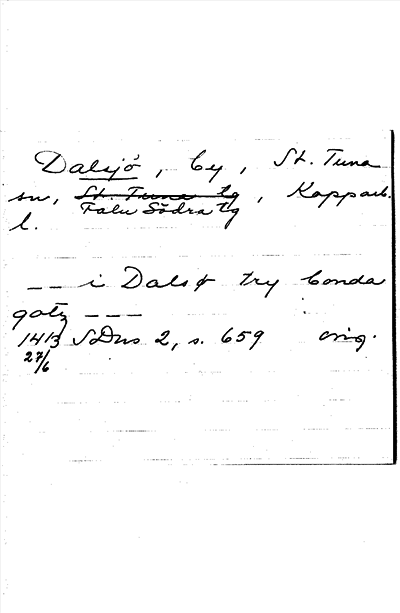 Dalsjö, by, St. Tuna
sn, St. Tuna tg, Kopparb.
Falu Södra tg
l.
-- i Dalsø try bonda
gotz ---
1413 SDns 2, s. 659 orig.
27/6